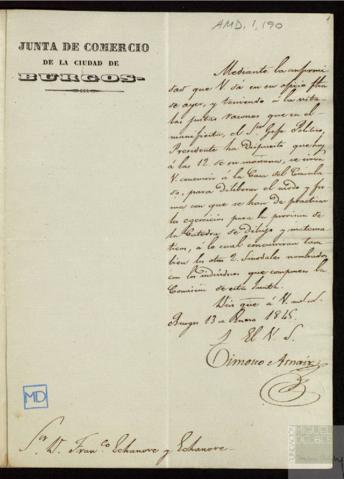 AMD, 1, 190
JUNTA DE COMERCIO
DE LA CIUDAD DE
BURGOS
Mediante la conformi
dad que V. da en su oficio fha
de ayer, y teniendo á la vista
las justas razones que en el
manifiesta, el Sor Gefe Politico
Presidente ha dispuesto que hoy
á las 12 de su mañana, se sirva
V. concurrir á la Casa del Consula
do, para deliberar el modo y for
ma con que se han de practicar
los egercicios para la provision de
la Catedra de Dibujo y matema
ticas, á lo cual concurriran tam
bien los otros 2. Sinodales nombrados
con los individuos que componen la
Comision de esta Junta.
Dios gue á V. ms. as.
Burgos 13 de Enero 1845.
El V. S.
Timoteo Arnaiz
MD
Sor D. Franco Echanove y Echanove.